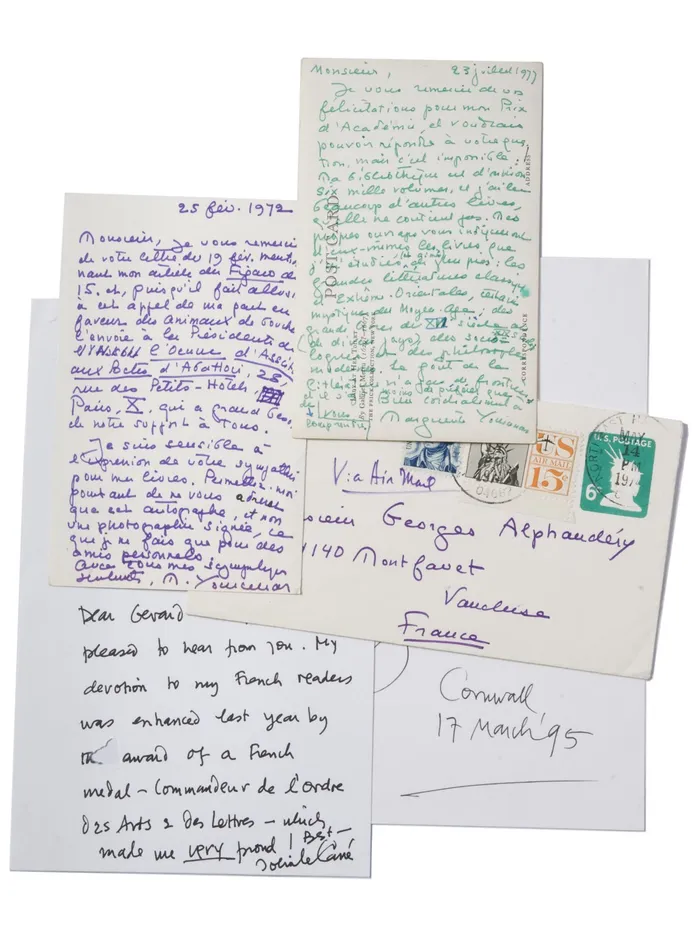 Monsieur, 23 juillet 1977
Je vous remercie de vos
félicitations pour mon Prix
d'Académie, et voudrais
pouvoir répondre à votre ques
tion, mais c'est impossible.
Ma bibliothèque est d'environ
six mille volumes, et j'ai lu
beaucoup d'autres livres,
qu'elle ne contient pas. Mes
propres ouvrages vous indiquent
d'eux-mêmes les livres que
j'ai étudiés de plus près: les
grandes littératures classiques
et Extrême-Orientales, certains
mystiques du Moyen Age, des
grandes du XIX siècle
des
et des philosophes
Le goût de la
n'a pas de frontières
et
Bien cordialement à
vous
Marguerite Yourcenar
POST CARD
ADDRESS
CORRESPONDENCE
THE FRICK COLLECTION, NEW YORK
25 fév. 1972
Monsieur, Je vous remercie
de votre lettre du 19 fév. mention
nant mon article du Figaro du
15. et, puisqu'il fait allusion
à cet appel de ma part en
faveur des animaux de
l'envoie à la Présidente de
l'Oeuvre d'Assistance
aux Bêtes d'Abattoir, 25,
rue des Petits-Hôtels,
Paris, X, qui a grand besoin
de notre support à tous.
Je suis sensible à
l'expression de votre sympathie
pour mes livres. Permettez-moi
pourtant de ne vous adresser
que cet autographe, et non
une photographie signée, ce
que je ne fais que pour des
amis personnels.
Avec tous mes sympathiques
M. Yourcenar
U.S. POSTAGE
6
US
AIR MAIL
15c
MAY
14
PM
1974
04662
Via Air Mail
Georges Alphandéry
Montfavet
Vaucluse
France
Dear Gerard
pleased to hear from you. My
devotion to my French readers
was enhanced last year by
award of a French
medal – Commandeur de l'ordre
des Arts & des Lettres – which
made me very proud! Best –
John le Carré
Cornwall
17 March '95